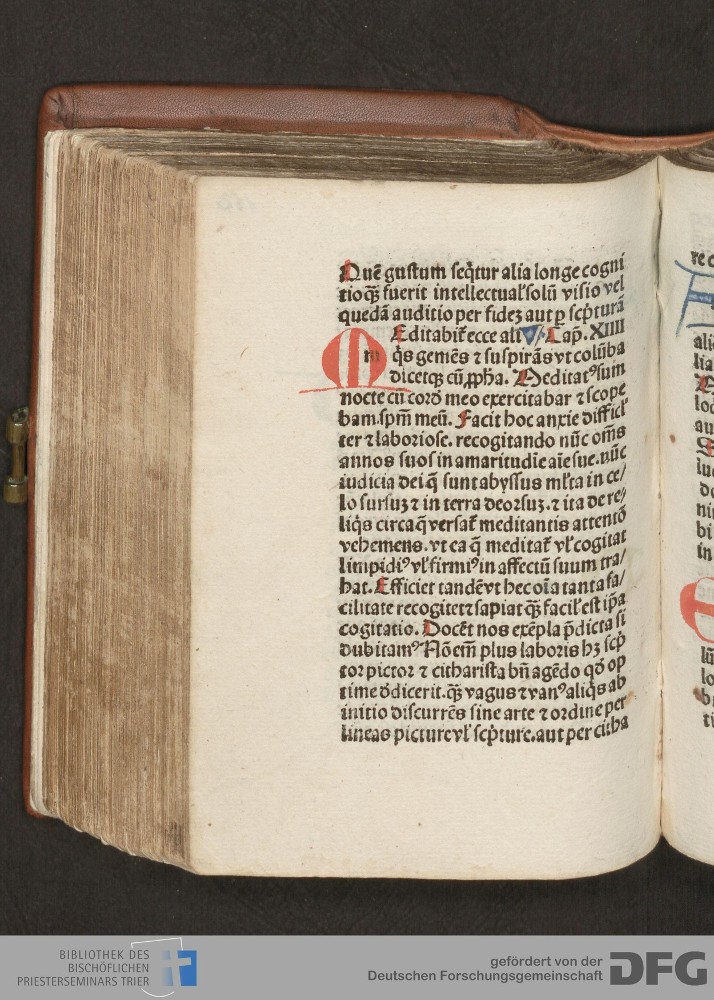 Quē gustum seq̄tur alia longe cogni
tio q̄ꝫ fuerit intellectual' solū visio vel
quedā auditio per fidez aut ꝑ scp̄turā
Editabit̄ ecce ali Cap̄. XIIII
q̇s gemēs ⁊ suspirās vt colūba
dicetqꝫ cū ꝓpħa. Meditatꝰ sum
nocte cū cord̄ meo exercitabar ⁊ scope
bam. spm̄ meū. Facit hoc anxie difficl'
ter ⁊ laboriose. recogitando nūc om̄s
annos suos in amaritudīe aīe sue. nūc
iudicia dei q̄ sunt abyssus ml'ta in ce/
lo sursuꝫ ⁊ in terra deorsuꝫ. ⁊ ita de re/
liq̇s circa q̄ versat̄ meditantis attentō
vehemens. vt ea q̄ meditat̄ vl' cogitat
limpidiꝰ vl' firmiꝰ in affectū suum tra/
hat. Efficiet tandē vt hec oīa tanta fa/
cilitate recogitet ⁊ sapiat q̄ꝫ facil' est ip̄a
cogitatio. Docēt nos exēpla p̄dicta si
dubitamꝰ Nō em̄ plus laboris hꝫ scp̄
tor pictor ⁊ citharista bn̄ agēdo qd̄ op
time ddicerit. q̄ꝫ vagus ⁊ vanꝰ aliq̇s ab
initio discurrēs sine arte ⁊ ordine per
lineas picture vl' scp̄ture. aut per citha
BIBLIOTHEK DES
BISCHÖFLICHEN
PRIESTERSEMINARS TRIER
gefördert von der
Deutschen Forschungsgemeinschaft
DFG